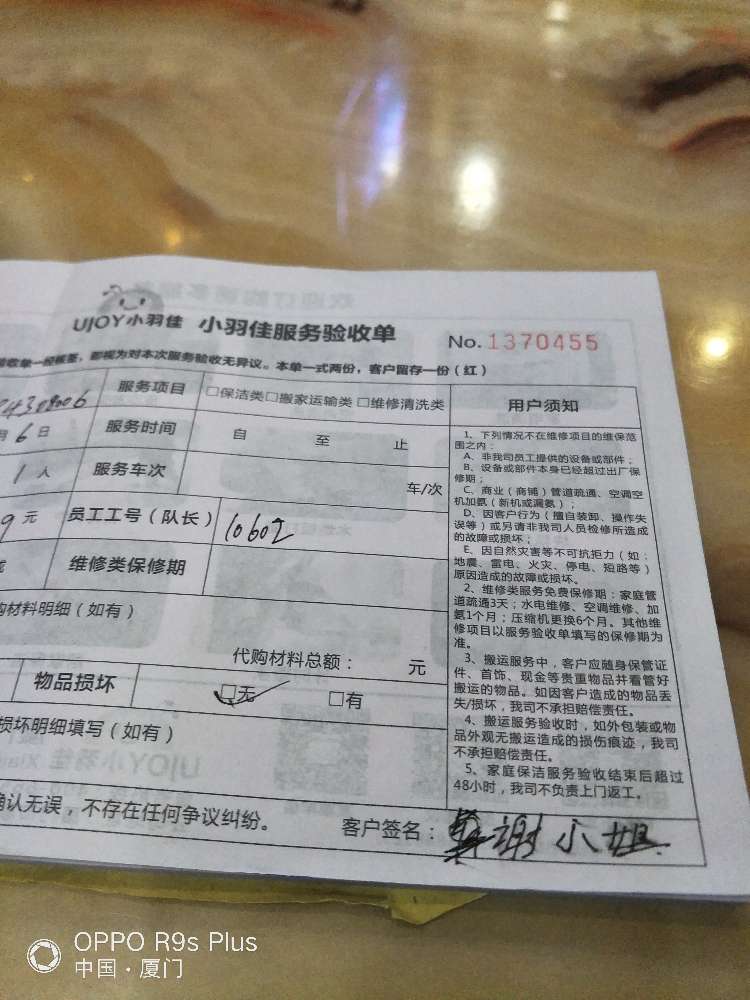 UJOY小羽佳 小羽佳服务验收单
No. 1370455
收单一经核签，即视为对本次服务验收无异议。本单一式两份，客户留存一份（红）
服务项目 □保洁类□搬家运输类 □维修清洗类
月6日 服务时间 自 至 止
1人 服务车次 车/次
9元 员工工号（队长） 10602
维修类保修期
购材料明细（如有）
代购材料总额： 元
物品损坏 ☑无 □有
损坏明细填写（如有）
确认无误，不存在任何争议纠纷。 客户签名： 谢小姐
用户须知
1、下列情况不在维修项目的维保范
围之内：
A、非我司员工提供的设备或部件；
B、设备或部件本身已经超过出厂保
修期；
C、商业（商铺）管道疏通、空调空
机加氨（新机或漏氨）；
D、因客户行为（擅自装卸、操作失
误等）或另请非我司人员检修所造成
的故障或损坏；
E、因自然灾害等不可抗拒力（如：
地震、雷电、火灾、停电、短路等）
原因造成的故障或损坏。
2、维修类服务免费保修期：家庭管
道疏通3天；水电维修、空调维修、加
氨1个月；压缩机更换6个月。其他维
修项目以服务验收单填写的保修期为
准。
3、搬运服务中，客户应随身保管证
件、首饰、现金等贵重物品并看管好
搬运的物品。如因客户造成的物品丢
失/损坏，我司不承担赔偿责任。
4、搬运服务验收时，如外包装或物
品外观无搬运造成的损伤痕迹，我司
不承担赔偿责任。
5、家庭保洁服务验收结束后超过
48小时，我司不负责上门返工。
OPPO R9s Plus
中国·厦门